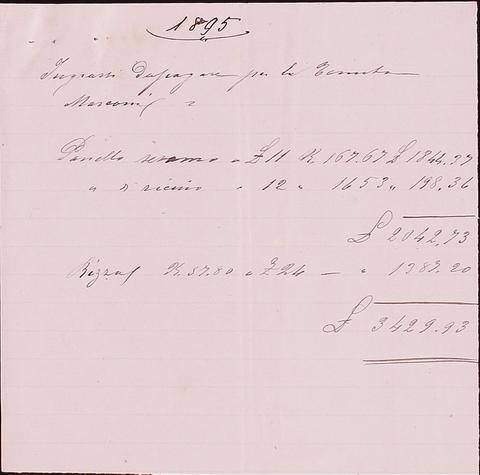 1895
Ingrassi Dapagare per la Tenuta
Marconi
Panello sesamo a £ 11 K. 167.67 £ 1844.37
" ricino " 12 " 1653 " 198.36
£ 2042.73
K. 57.80 a £ 24 — " 1387.20
£ 3429.93